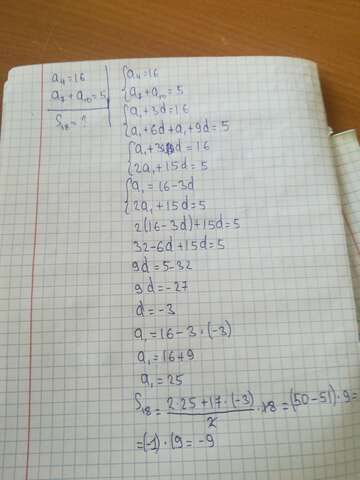 a₄=16
a₇+a₁₀=5
S₁₈=?
{a₄=16
a₇+a₁₀=5
{a₁+3d=16
a₁+6d+a₁+9d=5
{a₁+3d=16
2a₁+15d=5
{a₁=16-3d
2a₁+15d=5
2(16-3d)+15d=5
32-6d+15d=5
9d=5-32
9d=-27
d=-3
a₁=16-3·(-3)
a₁=16+9
a₁=25
S₁₈=(2·25+17·(-3))/2·18=(50-51)·9=
=(-1)·(9=-9